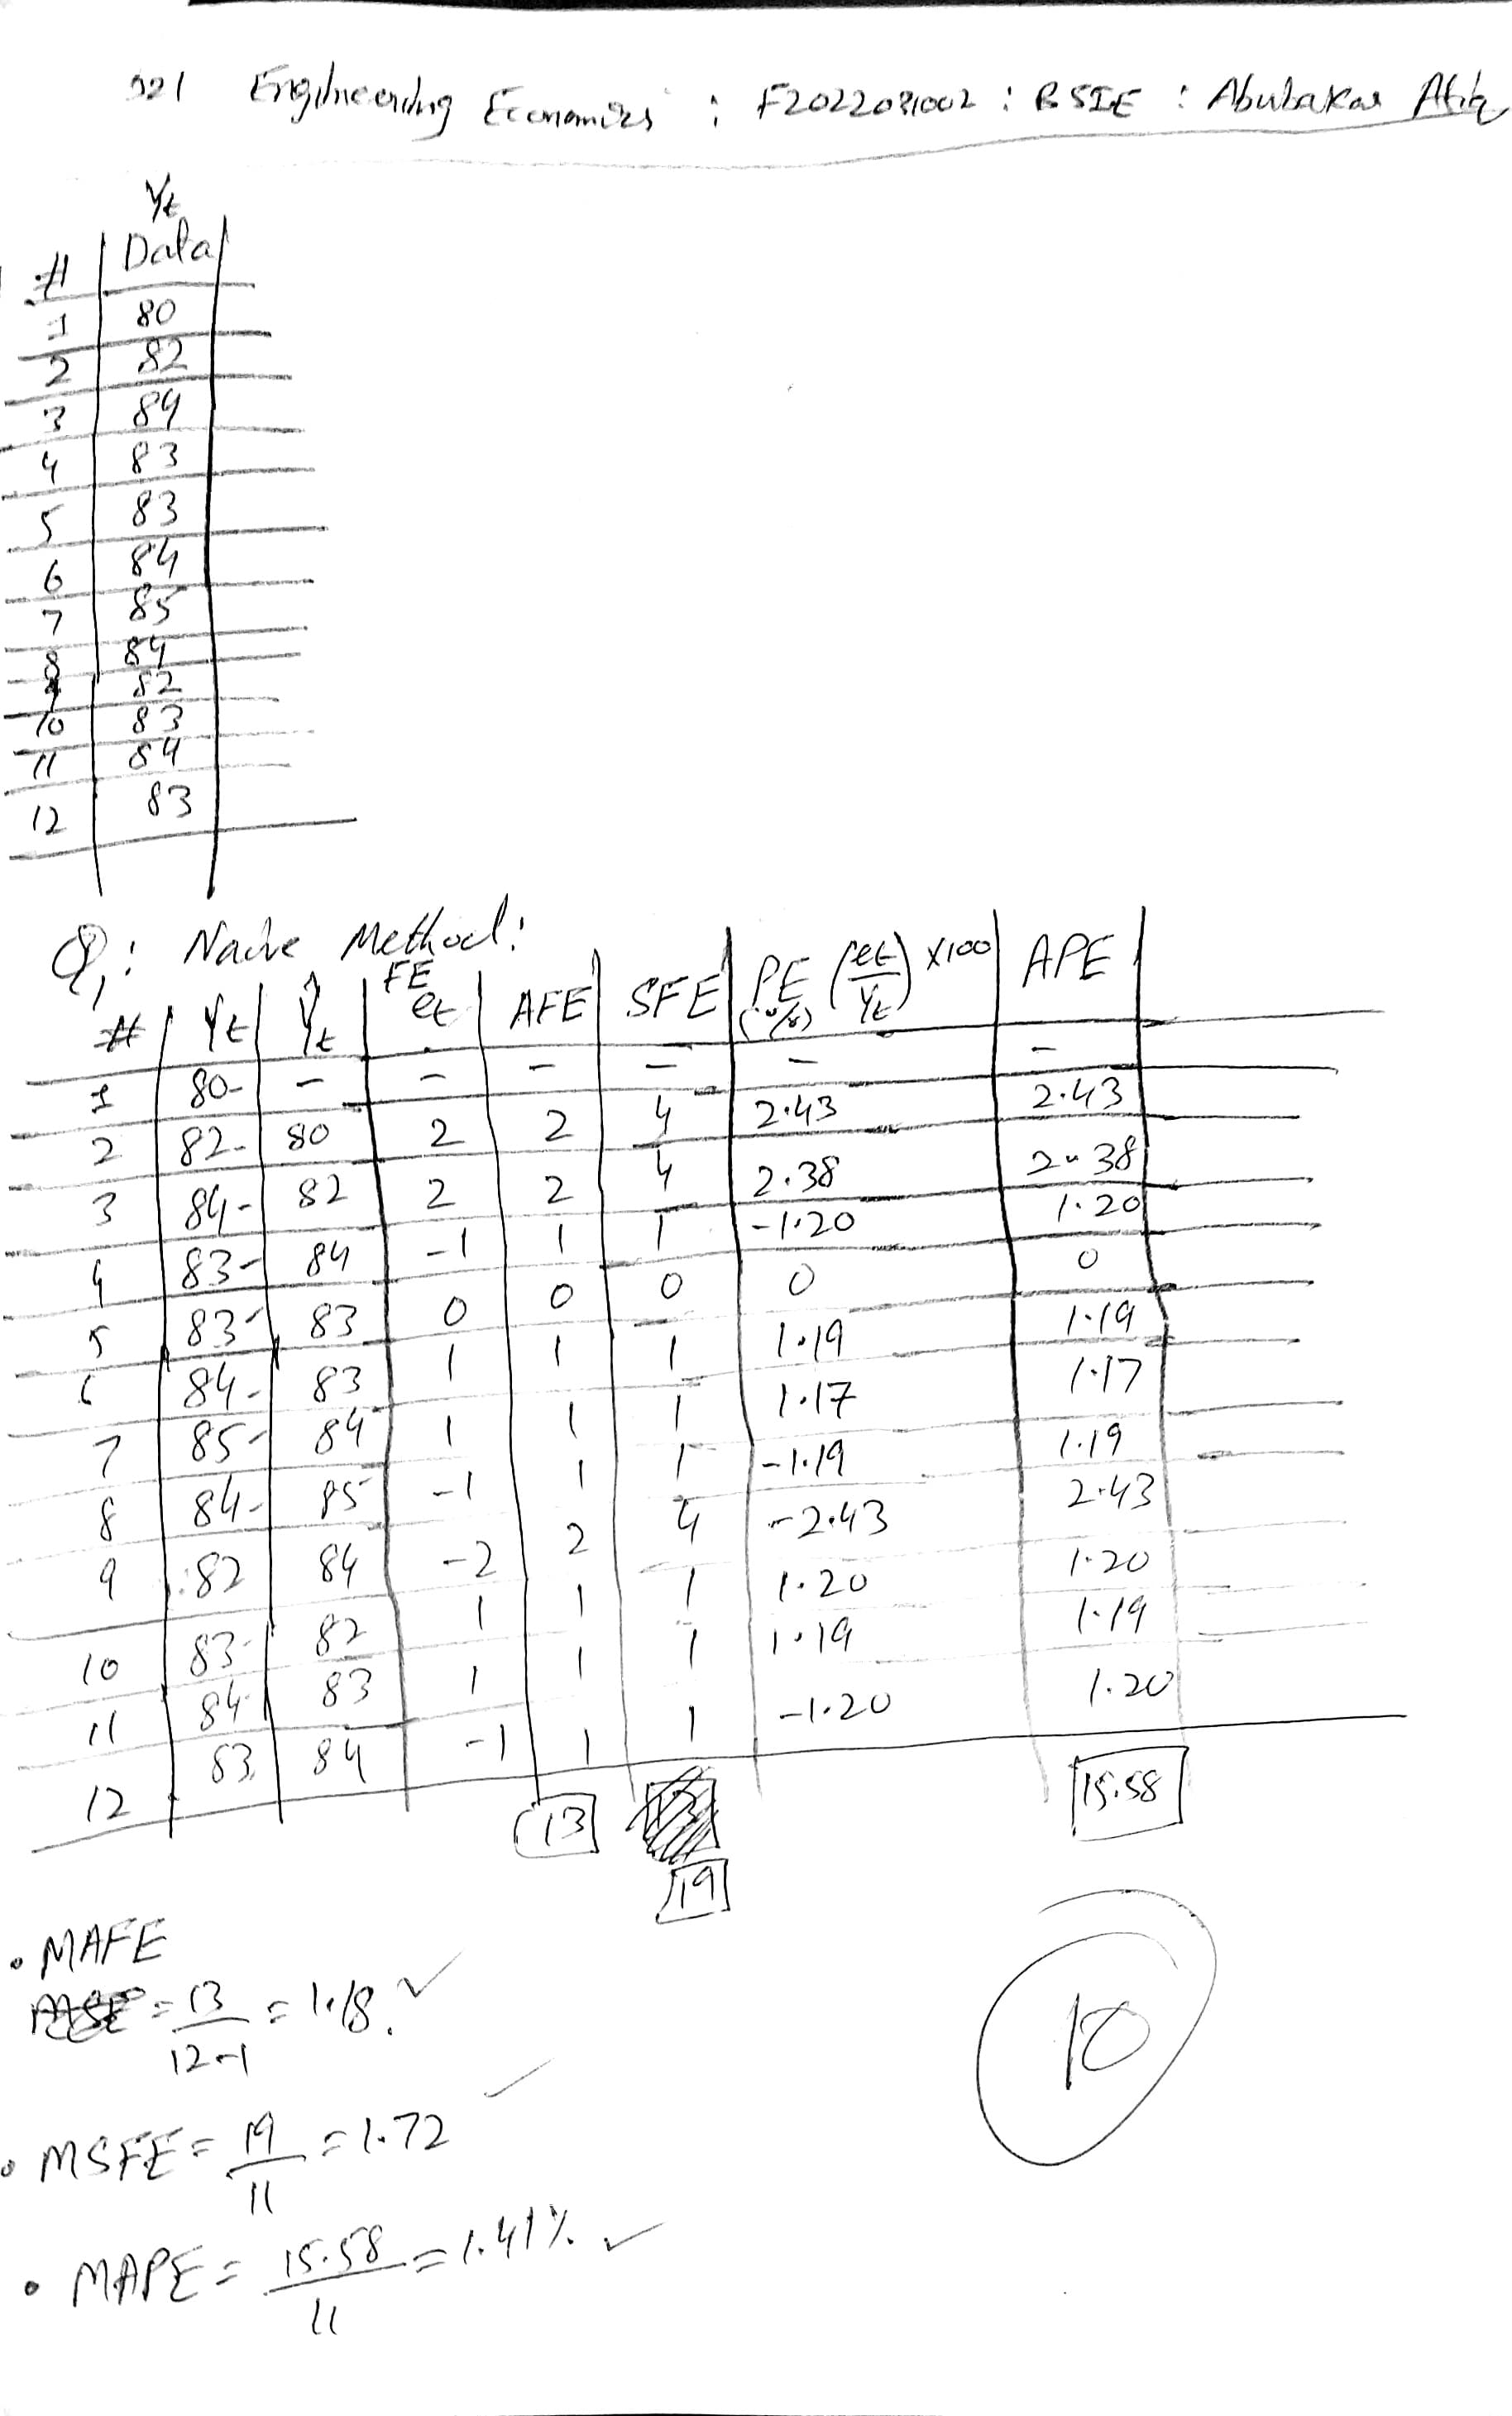 521 Engineering Economics : F2022081002 : BSIE : Abubakar Atiq
Yt
# Data
1 80
2 82
3 84
4 83
5 83
6 84
7 85
8 84
9 82
10 83
11 84
12 83
Q1: Naive Method:
# Yt Ŷt FE et AFE SFE PE (%) (et/Yt) x100 APE
1 80 - - - - - -
2 82 80 2 2 4 2.43 2.43
3 84 82 2 2 4 2.38 2.38
4 83 84 -1 1 1 -1.20 1.20
5 83 83 0 0 0 0 0
6 84 83 1 1 1 1.19 1.19
7 85 84 1 1 1 1.17 1.17
8 84 85 -1 1 1 -1.19 1.19
9 82 84 -2 2 4 -2.43 2.43
10 83 82 1 1 1 1.20 1.20
11 84 83 1 1 1 1.19 1.19
12 83 84 -1 1 1 -1.20 1.20
13 15.58
19
• MAFE
= 13/12-1 = 1.18
• MSFE = 19/11 = 1.72
• MAPE = 15.58/11 = 1.41%
10